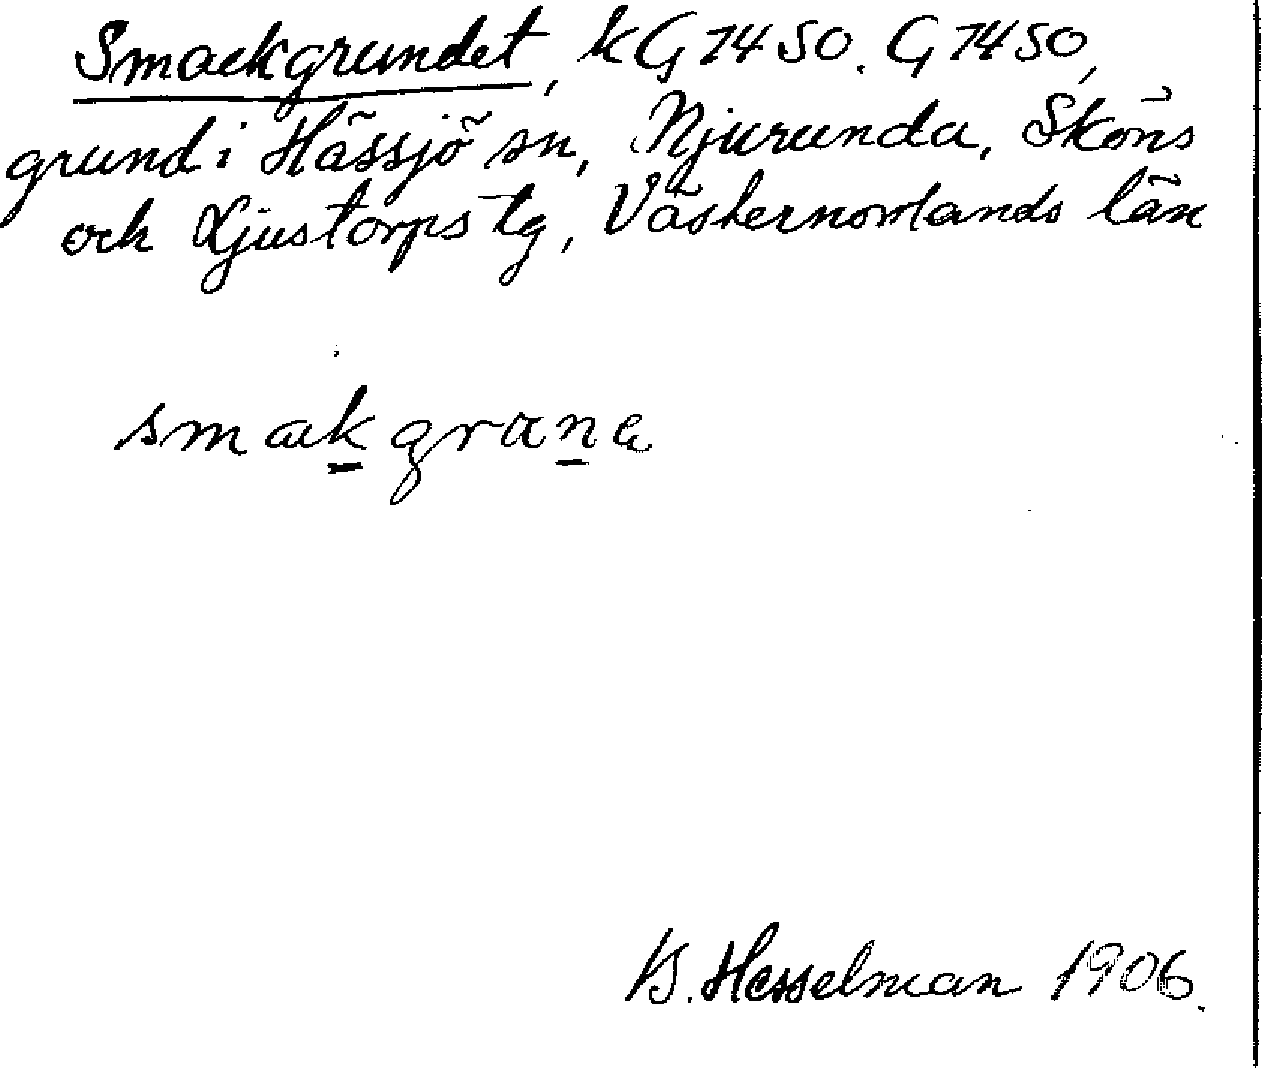 Smackgrundet, kG 7450. G 7450,
grund i Hässjö sn, Njurunda, Sköns
och Ljustorps tg, Västernorrlands län
smakgrana
B. Hesselman 1906.